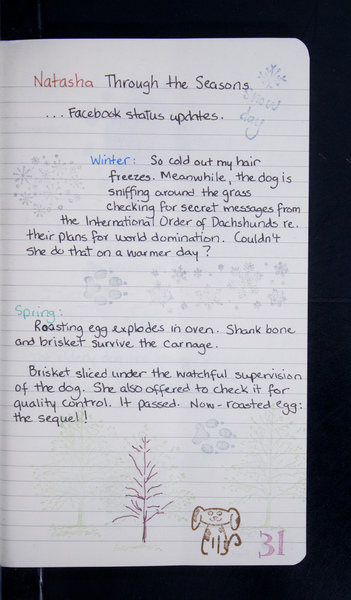 Natasha Through the Seasons
snow
day
... Facebook status updates.
Winter: So cold out my hair
freezes. Meanwhile, the dog is
sniffing around the grass
checking for secret messages from
the International Order of Dachshunds re.
their plans for world domination. Couldn't
she do that on a warmer day?
Spring:
Roasting egg explodes in oven. Shank bone
and brisket survive the carnage.
Brisket sliced under the watchful supervision
of the dog. She also offered to check it for
quality control. It passed. Now - roasted egg:
the sequel!
31